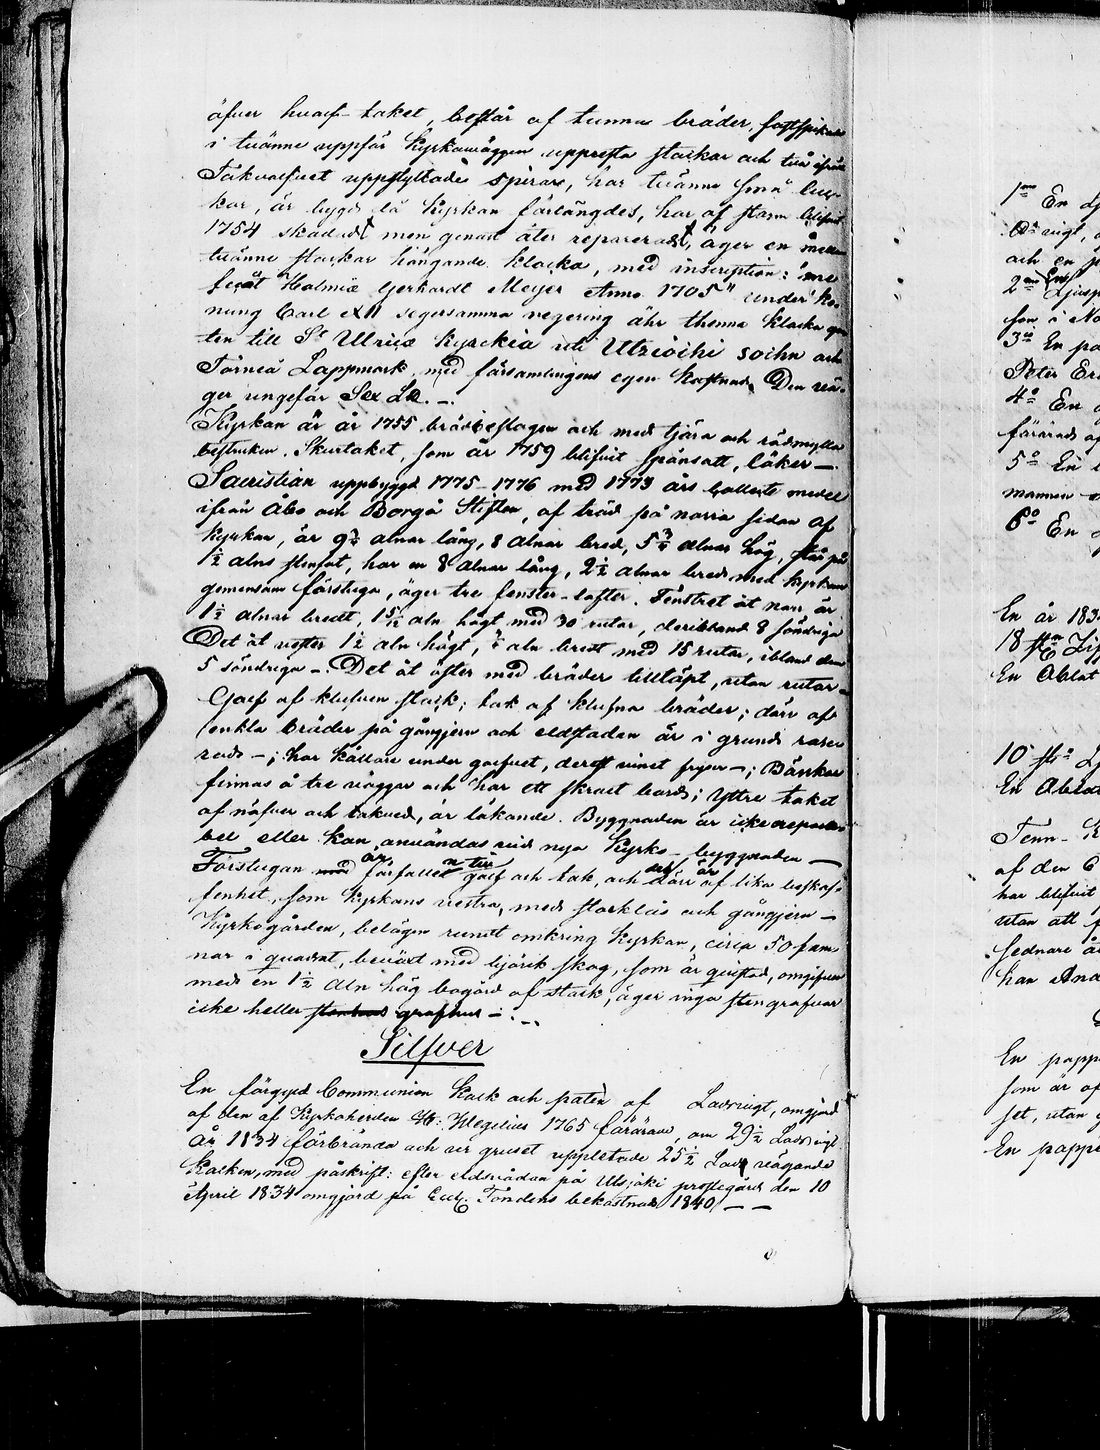 öfver hvarf-taket, består af tunna bräder, fastspikade
i tvänne uppför Kyrkoväggen uppresta stockar och två ifrån
Takhvarfvet uppstyltade spirar, har tvänne små luc-
kor, är bygd då Kyrkan förlängdes, har af storm blifvit
1754 skadad men genast åter reparerad, äger en mellan
tvänne stockar hängande klocka, med inscription: "me
fecit Holmiæ Gerhardt Meyer Anno 1705" under ko-
nung Carl XII segersamma regering ähr thenna klocka gu-
ten till St Ulricæ Kyrckia uti Utziöcki sochn och
Torneå Lappmark, med församlingens egen kostnad. Den vä-
ger ungefär Sex L℔. —.
Kyrkan är år 1755 brädbeslagen och med tjära och rödmylla
bestruken. Skurtaket, som år 1759 blifvit spånsatt, läker —.
Sacristian uppbyggd 1775–1776 med 1773 års Collects medel
ifrån Åbo och Borgå Stiften, af träd på norra sidan af
Kyrkan, är 9¾ alnar lång, 8 alnar bred, 5¾ alnar hög, står på
1½ alns stenfot, har en 8 alnar lång, 2½ alnar bred med kyrkan
gemensam förstuga, äger tre fenster-lufter. Fenstret åt norr är
1½ alnar bredt, 1 5/12 aln högt med 30 rutor, deribland 8 söndriga
Det åt vester 1½ aln högt, ¾ aln bredt med 15 rutor, ibland dem
5 söndriga – Det åt öster med bräder tilltäpt, utan rutor –
Golf af klufven stock; tak af klufna bräder; dörr af
enkla bräder på gångjern och eldstaden är i grund rase-
rad –; har källare under golfvet, derest vinet fryser –; Bänkar
finnas å tre väggar och har ett skrait bord; Yttre taket
af näfver och takved, är läkande. Byggnaden är icke repara-
bel eller kan användas vid nya Kyrko-byggnaden —
Förstugan med är förfallet golf och tak, och dörr af lika beskaf-
fenhet, som Kyrkans vestra, med stocklås och gångjern –
Kyrkogården, belägen rundt omkring Kyrkan, circa 50 fam-
nar i quadrat, beväxt med björk skog, som är quistad, omgifven
med en 1½ aln hög bogård af stock, äger inga stengrafvar
icke heller grafhus – . –
Silfver
En förgyld Communion Kalk och paten af Lodvigt, omgjord
af den af Kyrkoherden Hr: Hegelius 1765 förärade, om 29½ Lod vigt
År 1834 förbrända och ur gruset uppletade 25½ Lod vägande
Kalken, med påskrift: efter eldsvådan på Utsjoki prostegård den 10
April 1834 omgjord på Eccl. Fondens bekostnad 1840 – –
1mo En
och en
2do
3io En
Peter
4o En
förärad af
5o En
6o En
En år 183
18 st
En Oblat
10 st
En Oblat
Tenn-
af den
har blifvit
utan att
sednare
han
En papp
som är af
utan
En pappe